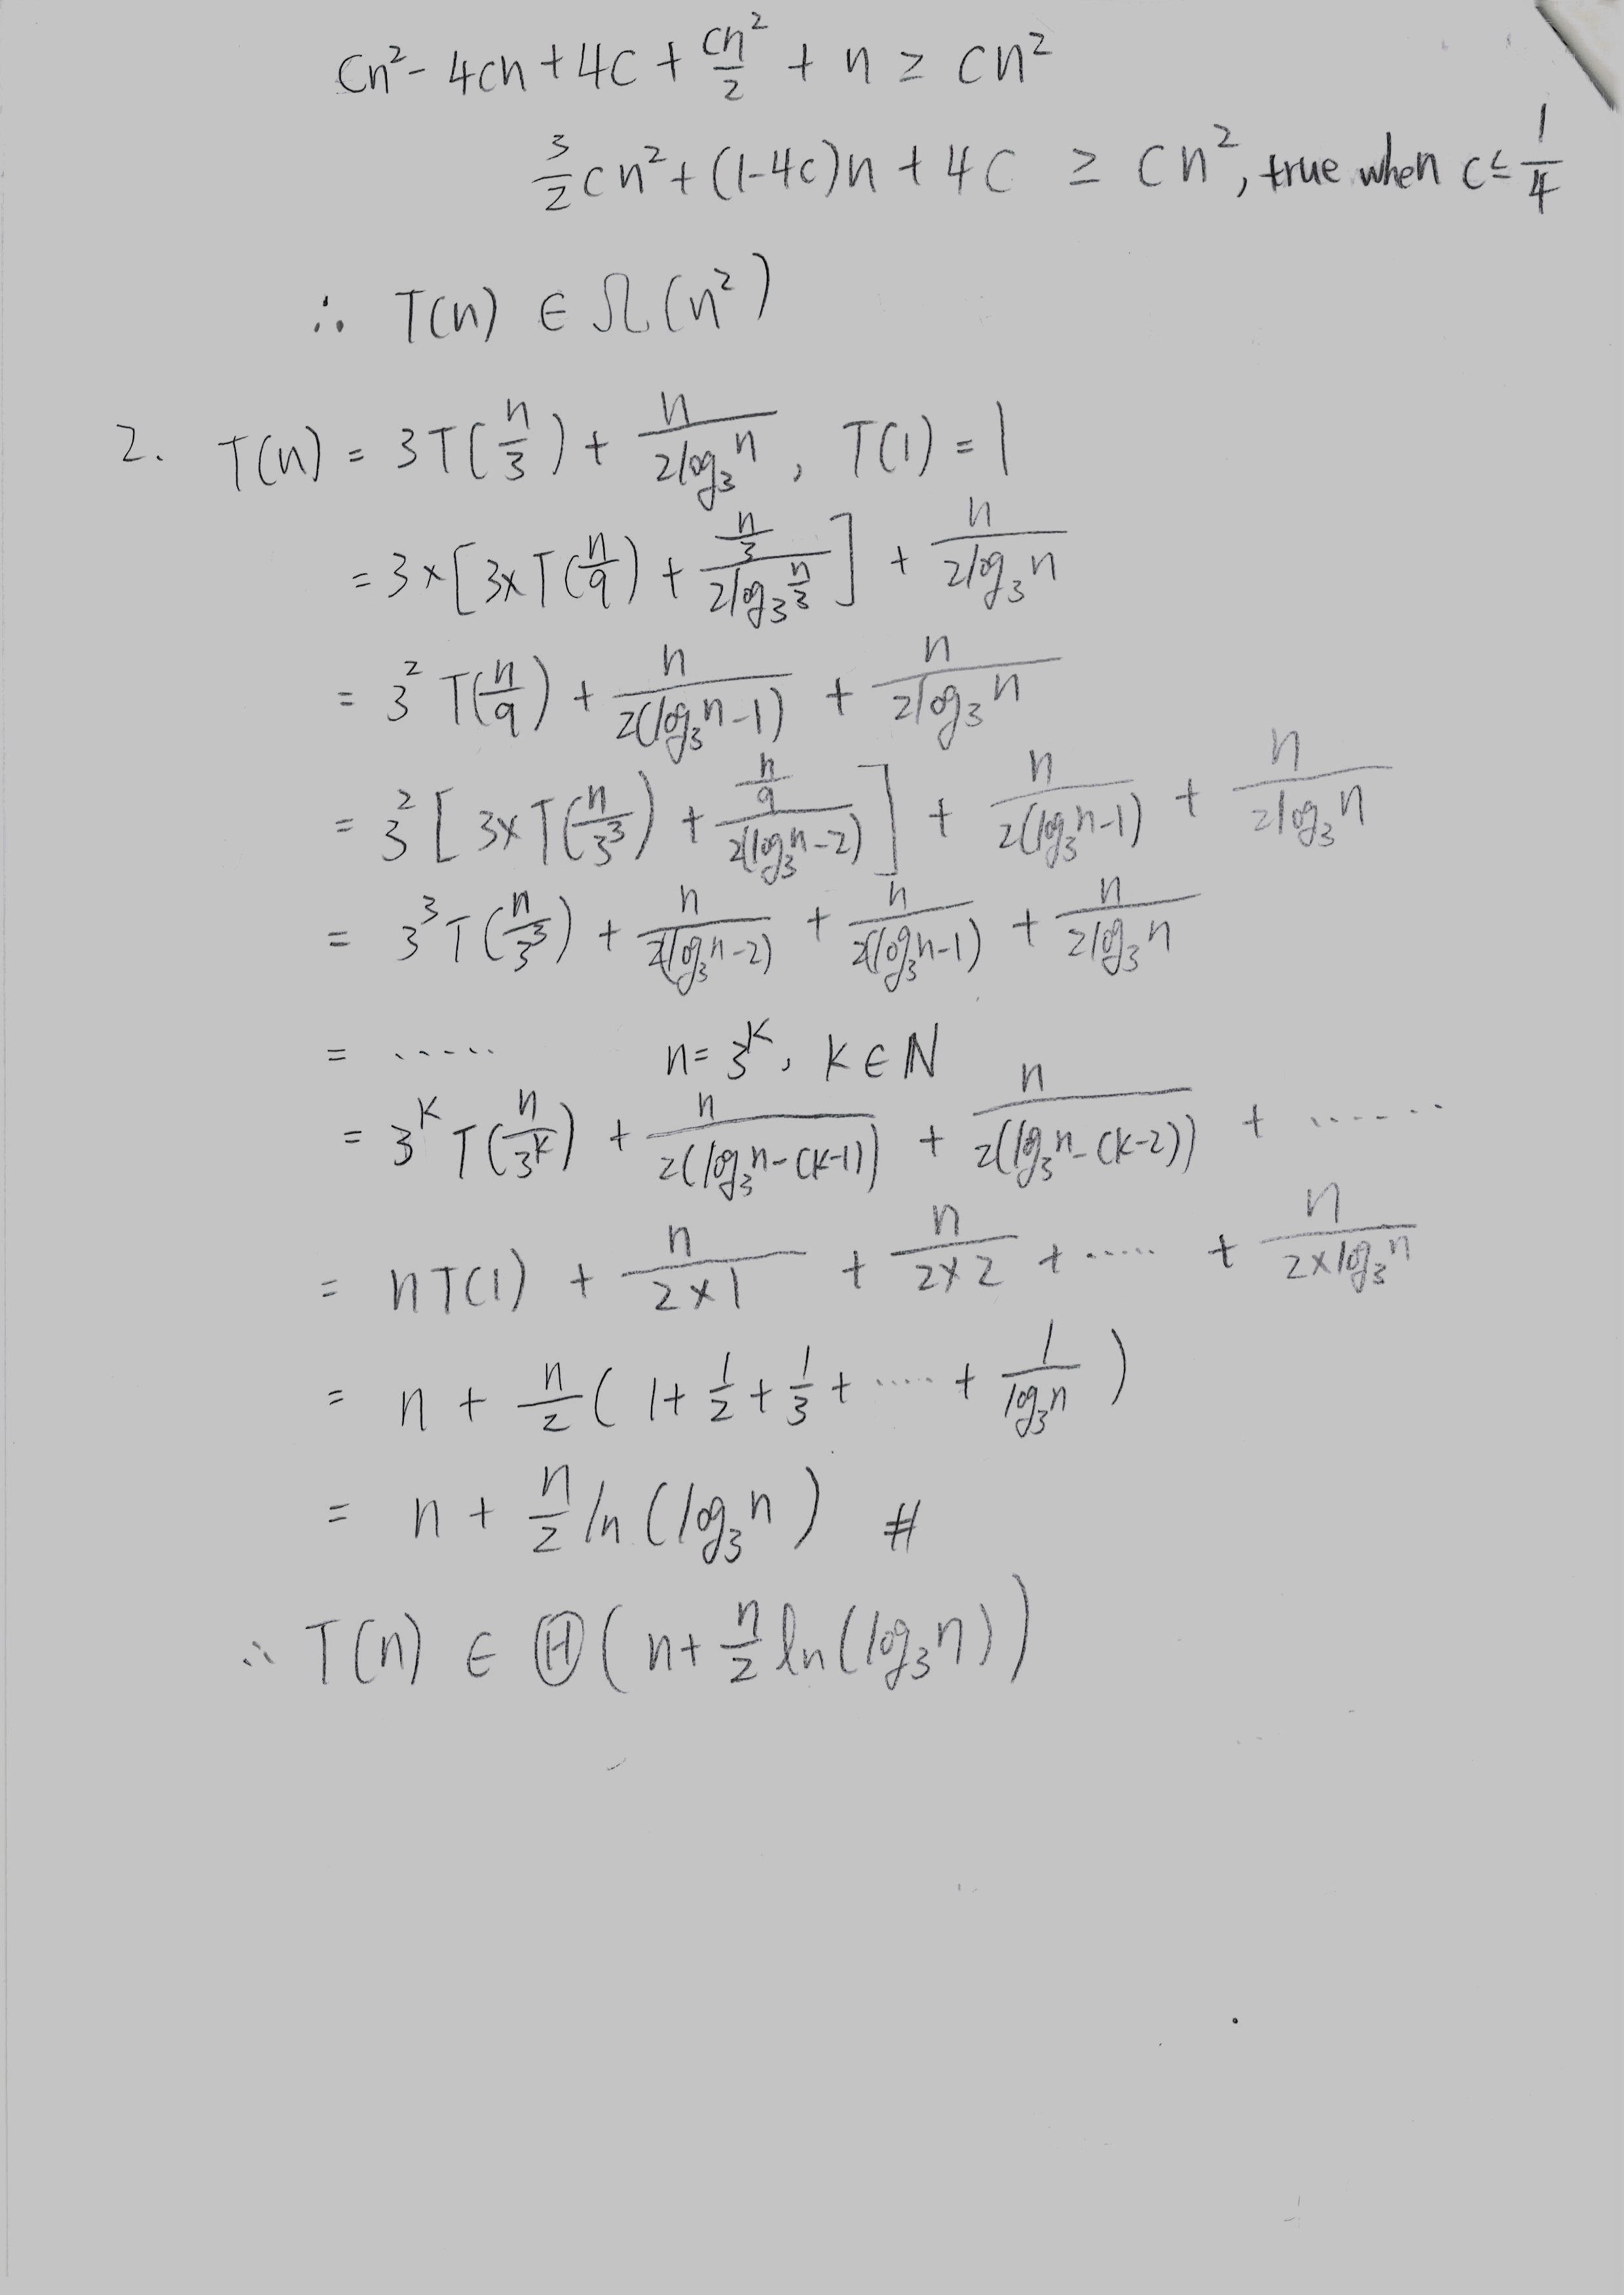 cn² - 4cn + 4c + cn²/2 + n ≥ cn²
3/2 cn² + (1-4c)n + 4c ≥ cn², true when c ≤ 1/4
∴ T(n) ∈ Ω(n²)
2. T(n) = 3T(n/3) + n/(2log₃n), T(1) = 1
= 3×[3×T(n/9) + (n/3)/(2log₃(n/3))] + n/(2log₃n)
= 3² T(n/9) + n/(2(log₃n-1)) + n/(2log₃n)
= 3² [3×T(n/3³) + (n/9)/(2(log₃n-2))] + n/(2(log₃n-1)) + n/(2log₃n)
= 3³ T(n/3³) + n/(2(log₃n-2)) + n/(2(log₃n-1)) + n/(2log₃n)
= ..... n = 3ᵏ, k ∈ ℕ
= 3ᵏ T(n/3ᵏ) + n/(2(log₃n-(k-1))) + n/(2(log₃n-(k-2))) + .......
= nT(1) + n/(2×1) + n/(2×2) + ..... + n/(2×log₃n)
= n + n/2 (1 + 1/2 + 1/3 + ..... + 1/log₃n)
= n + n/2 ln(log₃n) #
∴ T(n) ∈ Θ(n + n/2 ln(log₃n))